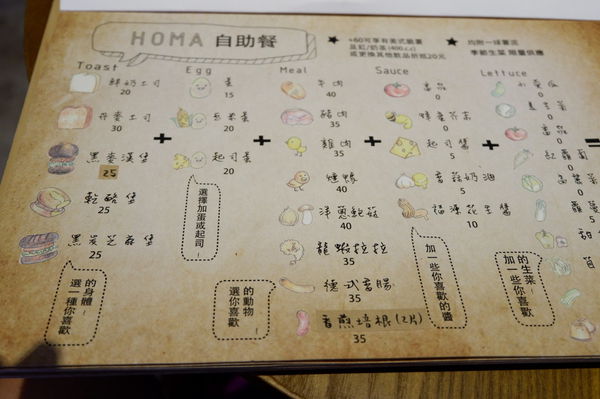 HOMA 自助餐
★ +60可享有美式脆薯
及紅/奶茶(400.c.c)
或更換其他飲品折抵20元
★ 均附一球薯泥
季節生菜 限量供應
Toast
鮮奶土司
20
丹麥土司
30
黑麥漢堡
25
乾酪堡
25
黑炭芝麻堡
25
選一種你喜歡
的身體~
+
Egg
蛋
15
玉米蛋
20
起司蛋
20
選擇加蛋或起司~
+
Meal
牛肉
40
豬肉
35
雞肉
35
燻鴨
40
洋蔥鮑菇
40
龍蝦拉拉
35
德式香腸
35
香煎培根(2片)
35
選你喜歡
的動物~
+
Sauce
0
蜂蜜芥末
0
起司醬
5
蘑菇奶油
5
福源花生醬
10
加一些你喜歡的醬
+
Lettuce
小黃瓜
0
0
0
0
0
5
5
加一些你喜歡
的生菜~
=